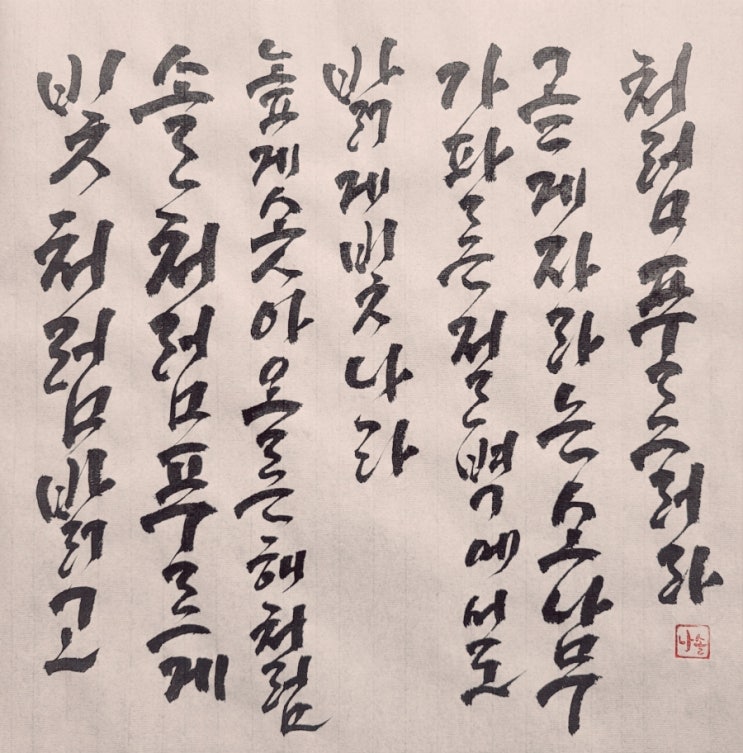 빛처럼밝고
솔처럼푸르게
높게솟아오른해처럼
밝게빛나라
가파른절벽에서도
곧게자라는소나무
처럼푸르러라
나솔